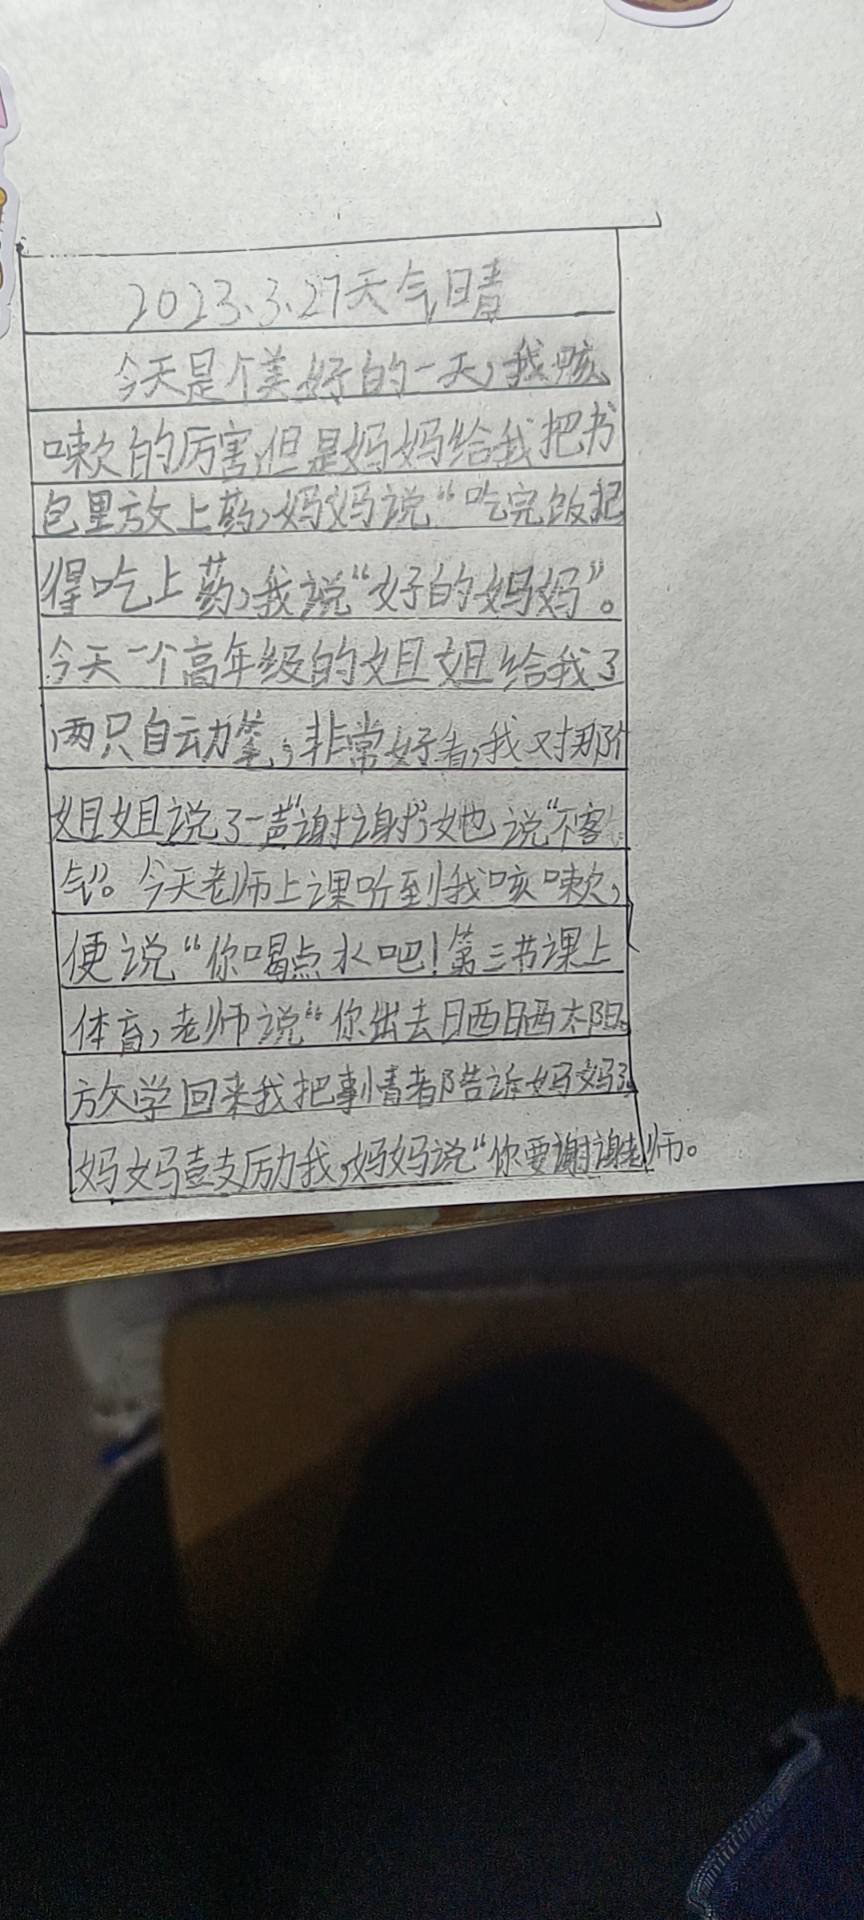 2023.3.27天气晴
今天是个美好的一天，我咳
嗽的厉害，但是妈妈给我把书
包里放上药，妈妈说“吃完饭记
得吃上药，我说“好的妈妈”。
今天一个高年级的姐姐给我了
两只自动笔，非常好看，我对那个
姐姐说了一声“谢谢”，她说“不客
气”。今天老师上课听到我咳嗽，
便说“你喝点水吧！第三节课上
体育，老师说“你出去晒晒太阳。
放学回来我把事情都告诉妈妈了。
妈妈鼓励我，妈妈说“你要谢谢老师。